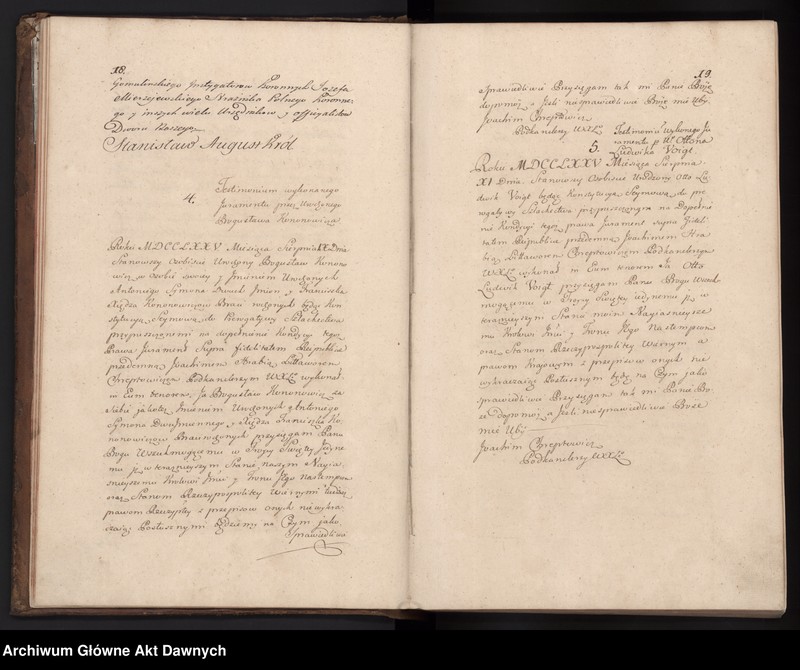 18.
Instygatorow Koronnych Jozefa
Mierzejewskiego Strażnika Polnego Koronne-
go y inszych wielu Urzędnikow y officyalistow
Dworu Naszego
Stanisław August Król
4. Testimonium wykonanego
Juramentu przez Urodzonego
Bogusława Kononowicza
Roku MDCCLXXV Miesiąca Sierpnia IX Dnia
Stanowszy osobiscie Urodzony Bogusław Konono-
wicz w osobie swoiey y Imieniem Urodzonych
Antoniego Symona Dwuch Imion y Franciszka
Xiędza Kononowiczow Braci rodzonych będąc Kon-
stytucyą Seymową do Prerogatywy Szlachectwa
przypuszczonemi na dopełnienie Kondycyi tegoż
Prawa Jurament Supra fidelitatem Reipublicæ
przedemną Joachimem Hrabią Littaworem
Chreptowiczem Podkanclerzym WXLit. wykonał
in Eum tenorem. Ja Bogusław Kononowicz za
siebie jako też Imieniem Urodzonych Antoniego
Symona Dwu Imiennego y Xiędza Franciszka Ko-
nonowiczow Braci rodzonych przysięgam Panu
Bogu Wszechmogącemu w Troycy Swiętey Jedyne-
mu iż w teraznieyszym Stanie naszym Nayia-
snieyszemu Krolowi Jmci y Tronu Jego następcom
oraz Stanom Rzeczypospolitey Wiernymi będąc
prawom Rzeczyplty z przepisow onych nie wykra-
czaiąc Posłusznymi będziemy na Czym jako
Sprawiedliwie
19.
Sprawiedliwie Przysięgam tak mi Panie Boże
dopomoż a Jeśli niesprawiedliwie Boże mię Ubiy.
Joachim Chreptowicz
Podkanclerzy WXLit.
5. Testimonium wykonego Ju-
ramentu p Ur. Ottona
Ludwika Voigt.
Roku MDCCLXXV Miesiąca Sierpnia
XI Dnia. Stanowszy Osobiscie Urodzony Otto Lu-
dwik Voigt będąc Konstytucyą Seymową do pre-
rogatywy Szlachectwa przypuszczonym na Dopełnie-
nie Kondycyi tegoż prawa Jurament supra fideli-
tatem Reipublicæ przedemną Joachimem Hra-
bią Littaworem Chreptowiczem Podkanclerzym
WXLit. wykonał in Eum tenorem. Ja Otto
Ludwik Voigt przysięgam Panu Bogu Wszech-
mogącemu w Troycy Swiętey Jedynemu iż w
teraznieyszym Stanie moim Nayiasnieysze-
mu Krolowi Jmci y Tronu Jego Następcom
oraz Stanom Rzeczypospolitey Wiernym a
prawom Kraiowym z przepisow onych nie
wykraczaiąc Posłusznym będę na Czym jako
sprawiedliwie Przysięgam tak mi Panie Bo-
że Dopomoż a Jeśli niesprawiedliwie Boże
mię Ubiy
Joachim Chreptowicz
Podkanclerzy WXLit.
Archiwum Główne Akt Dawnych